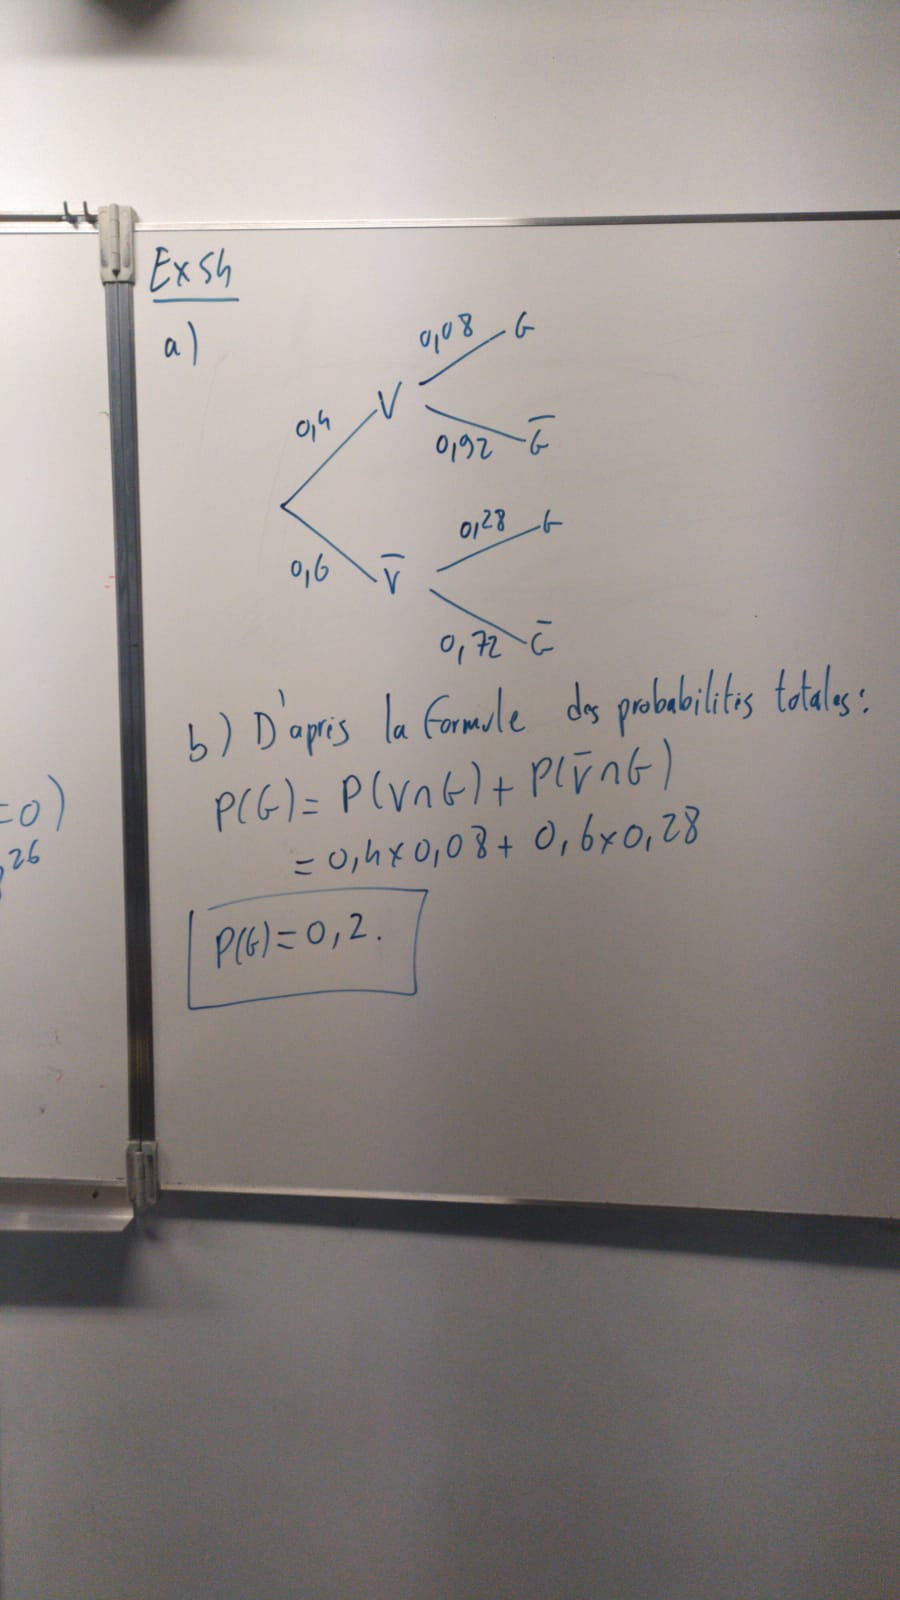 =0)
,26
Ex 54
a)
0,08 G
0,4 V
0,92 G̅
0,28 G
0,6 V̅
0,72 G̅
b) D'après la formule des probabilités totales :
P(G) = P(V∩G) + P(V̅∩G)
= 0,4 × 0,08 + 0,6 × 0,28
P(G) = 0,2.